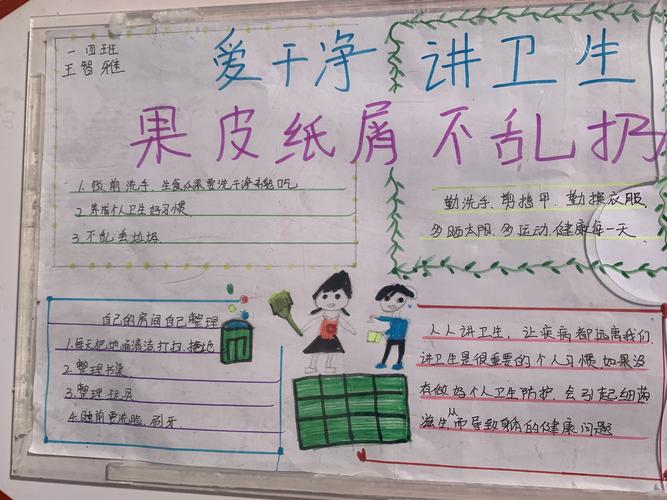 一四班
王智雅
爱干净 讲卫生
果皮纸屑不乱扔
1.饭前洗手.生食瓜果要洗干净才能吃
2.养成个人卫生好习惯.
3.不乱丢垃圾
勤洗手.剪指甲.勤换衣服.
多晒太阳.多运动.健康每一天
自己的房间自己整理
1.每天把地面清洁打扫.拖地
2.整理书桌
3.整理玩具
4.睡前要洗脸.刷牙
人人讲卫生,让疾病都远离我们.
讲卫生是很重要的个人习惯.如果没
有做好个人卫生防护,会引起细菌
滋生从而导致身体的健康问题